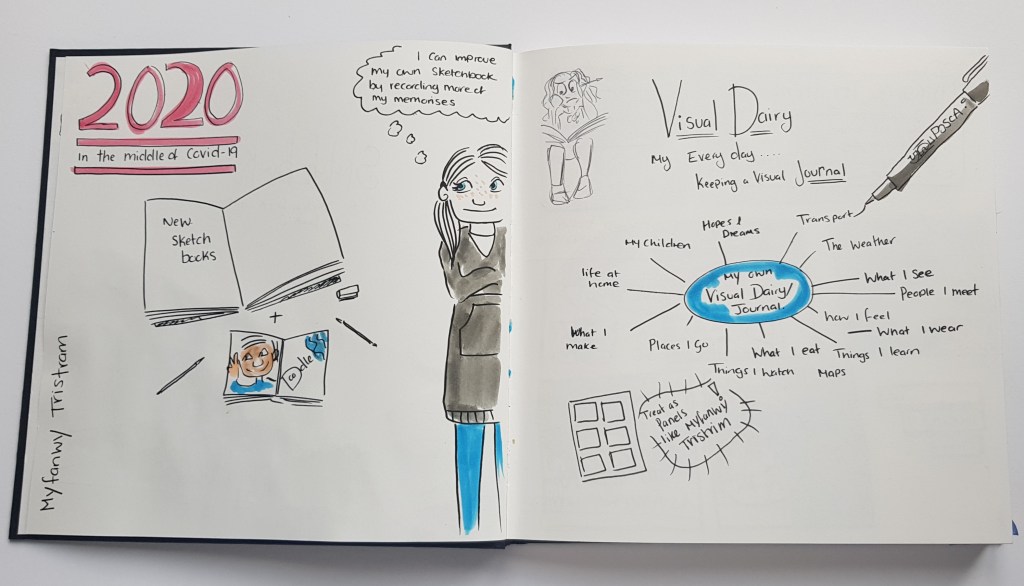 2020
in the middle of Covid-19
I can improve
my own sketchbook
by recording more of
my memorises
New
Sketch
books
+
Doodle
Myfanwy Tristram
Visual Dairy
My Every day....
Keeping a Visual Journal
POSCA
Transport
Hopes &
Dreams
My Children
The Weather
life at
home
My own
Visual Dairy/
Journal
What I See
People I meet
how I feel
What I wear
What I
make
Places I Go
What I eat
Things I learn
Things I watch
Maps
Treat as
Panels
like Myfanwy
Tristrim